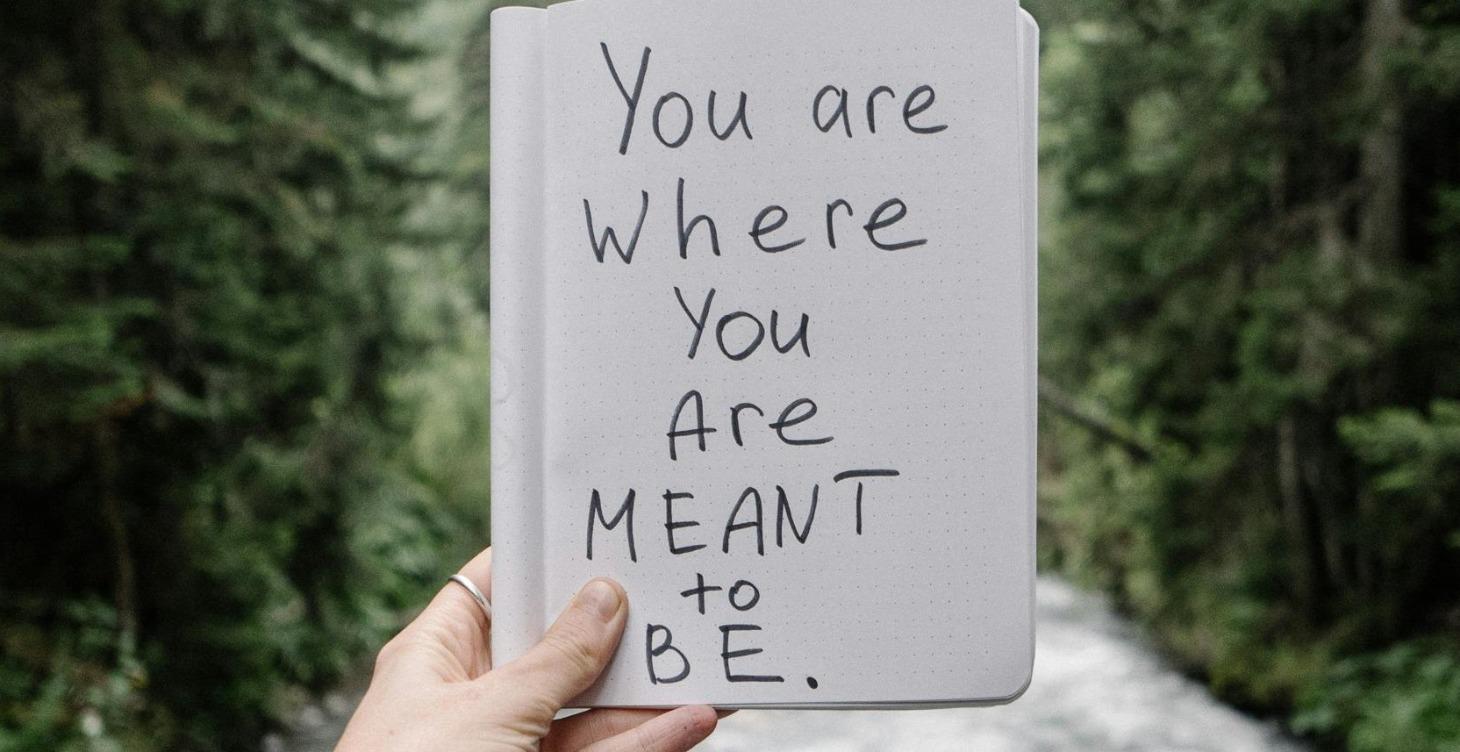 You are
Where
You
Are
MEANT
to
BE.